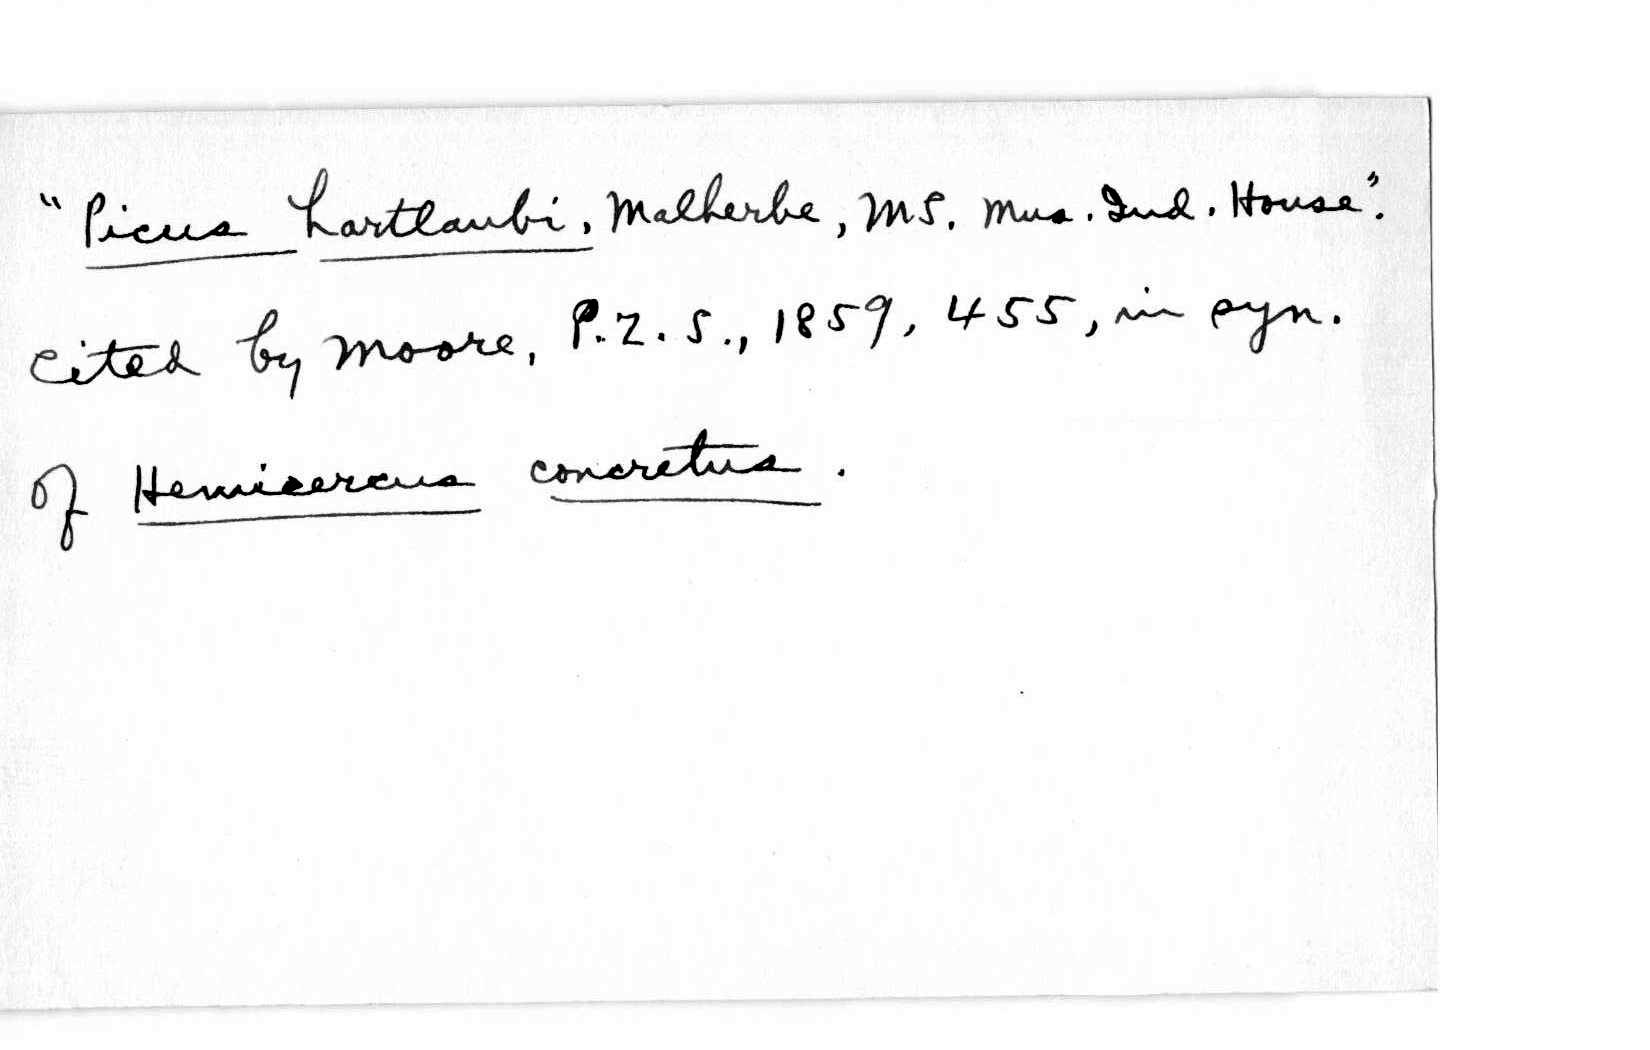 "Picus hartlaubi, Malherbe, MS. Mus. Ind. House".
cited by Moore, P.Z.S., 1859, 455, in syn.
of Hemicercus concretus.